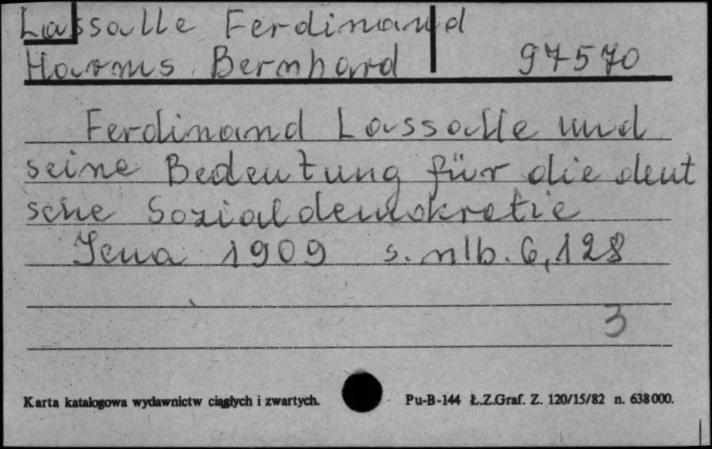 Lassalle Ferdinand
Harms Bernhard 97570
Ferdinand Lassalle und
seine Bedeutung für die deut
sche Sozialdemokratie
Jena 1909 s. nlb. 6,128
3
Karta katalogowa wydawnictw ciągłych i zwartych. Pu-B-144 Ł.Z.Graf. Z. 120/15/82 n. 638000.